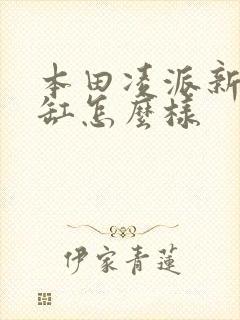 本田凌派新
缸怎麼樣
伊家青蓮